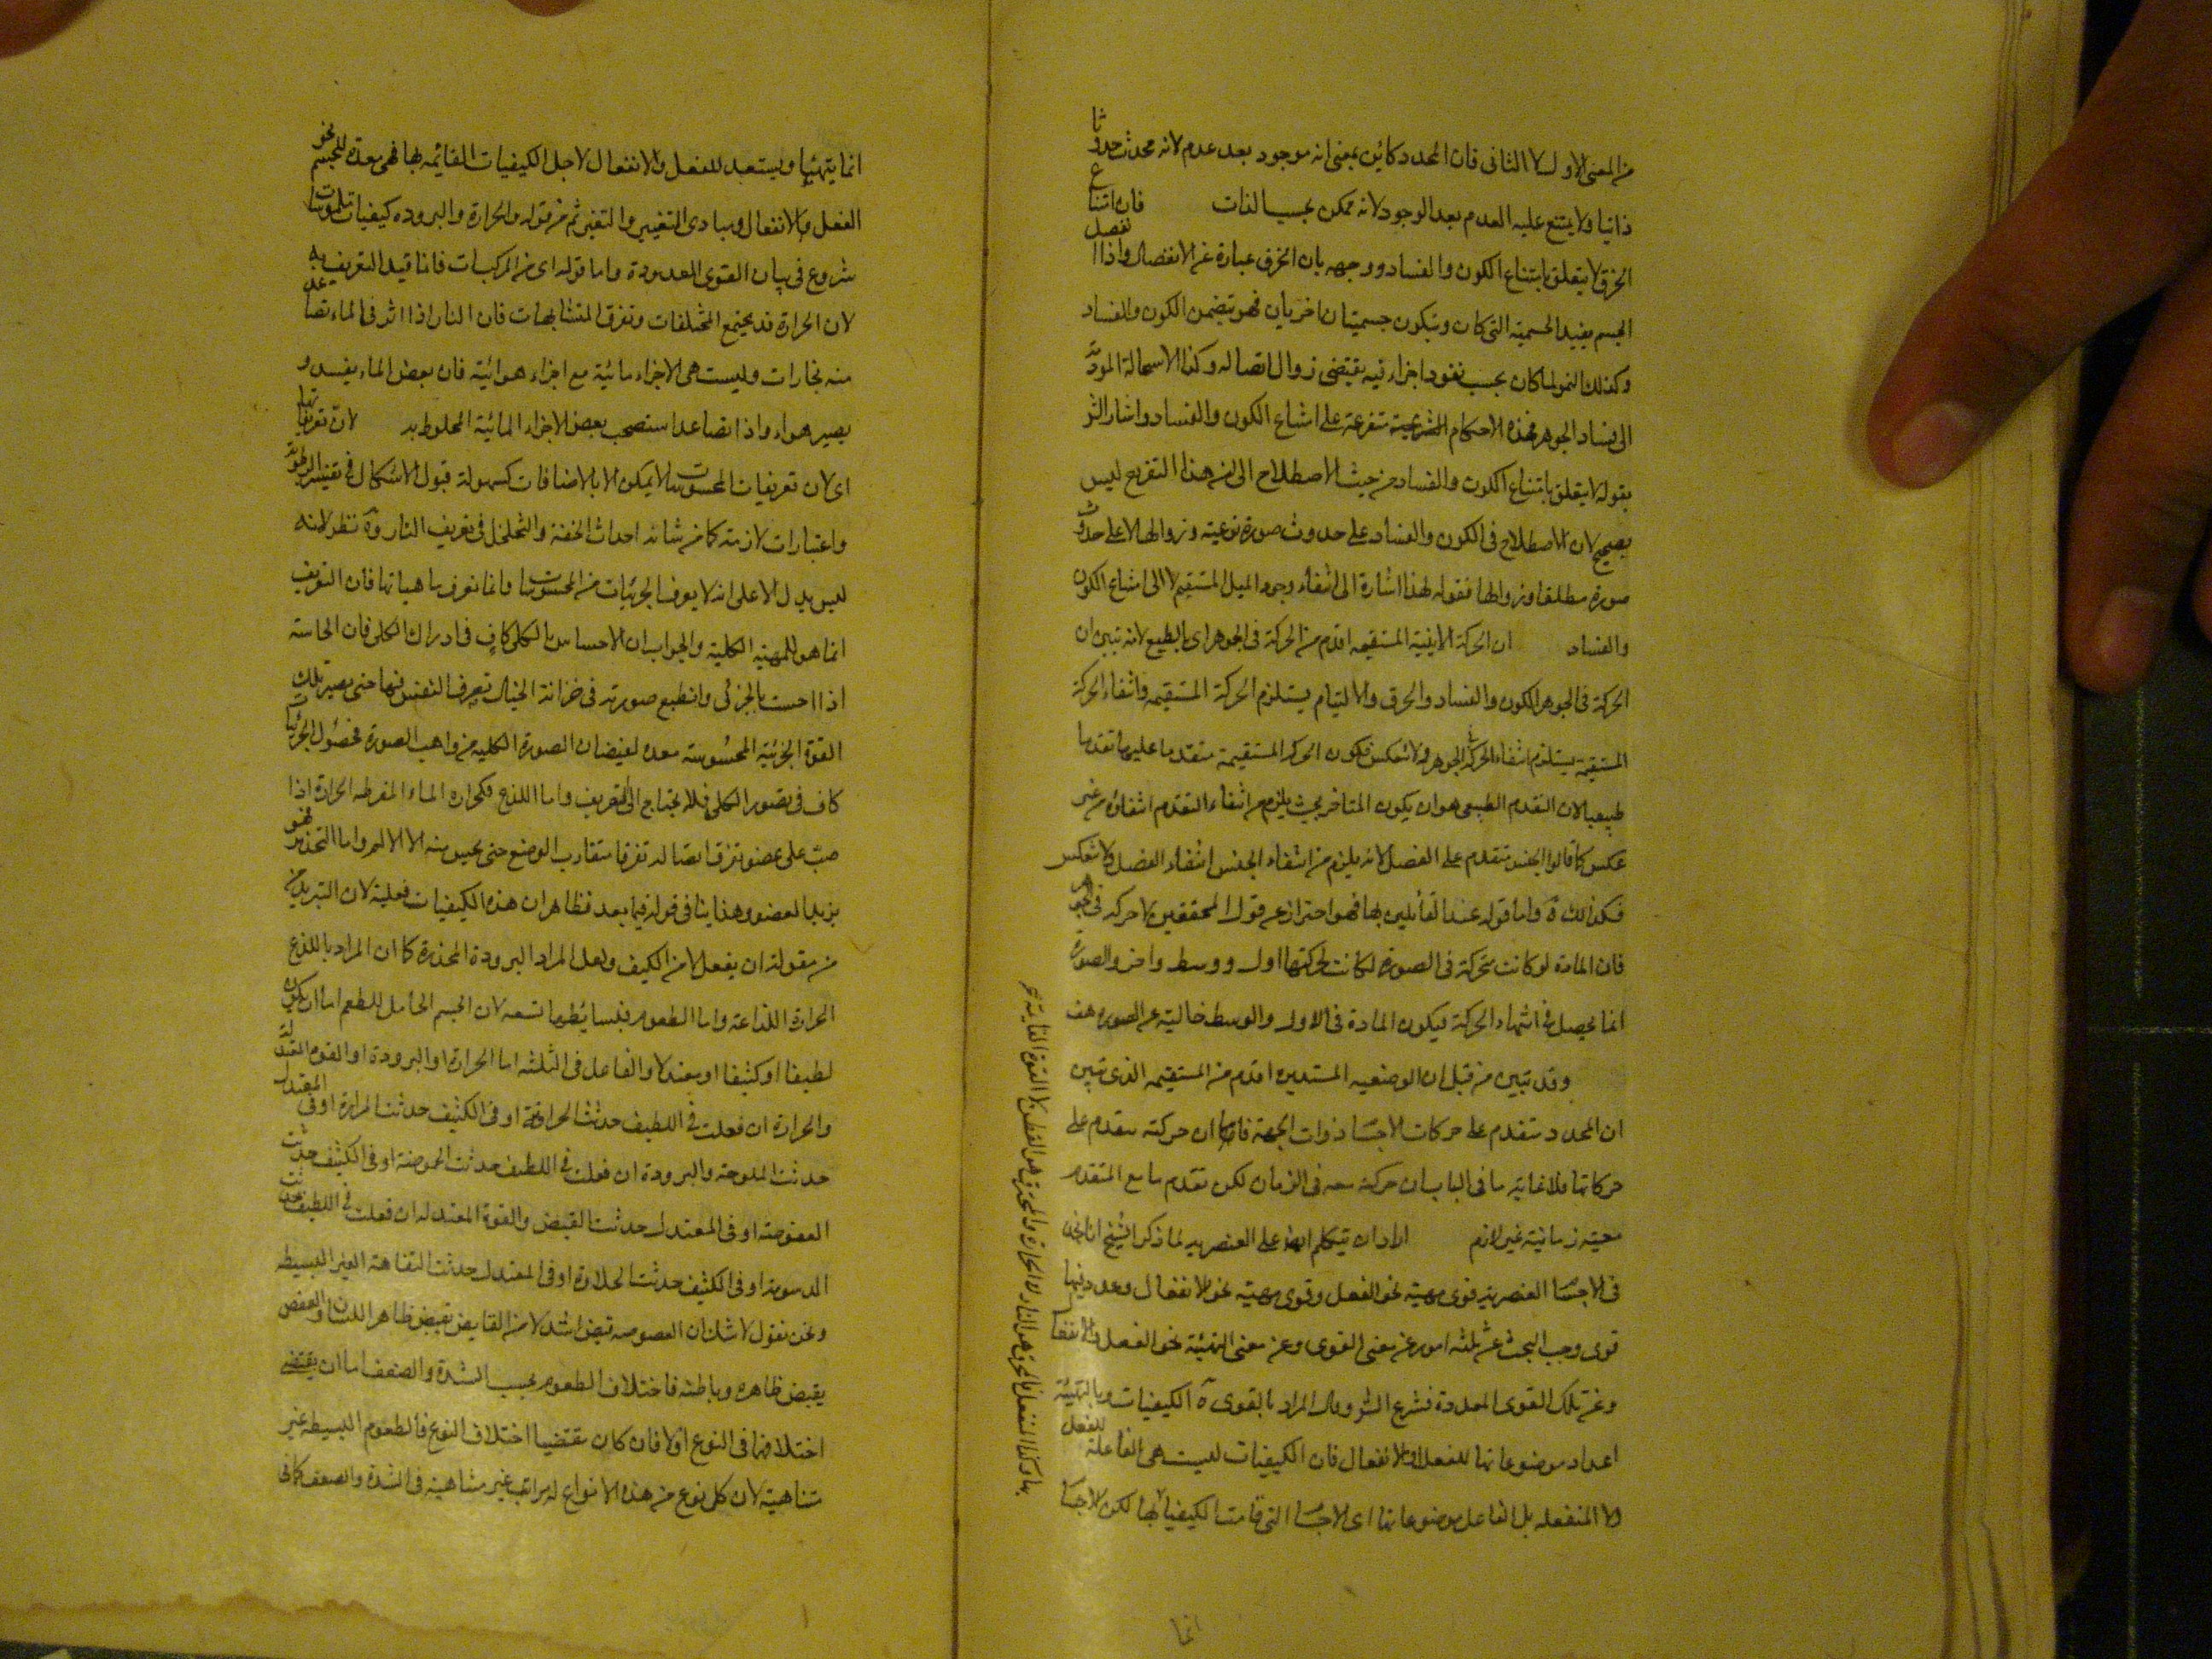 من المعنى الاول لا الثانى فان المحدد كائن بمعنى انه موجود بعد عدم لانه محدث حدوثا
ذاتيا ولا يمتنع عليه العدم بعد الوجود لانه ممكن بحسب الذات فان امتناع
الخرق لا يتعلق بامتناع الكون والفساد ووجهه بان الخرق عبارة عن الانفصال واذا انفصل
الجسم يفيد الجسمية التى كانت ويتكون جسميتان اخريان فهو يتضمن الكون والفساد
وكذلك النمو لما كان بحسب نفوذ اجزاء فيه يقتضى زوال اتصاله وكذا الاستحالة المودية
الى فساد الجوهر فهذه الاحكام متفرعة على امتناع الكون والفساد واشار الش
بقوله لا يتعلق بامتناع الكون والفساد من حيث الاصطلاح الى ان هذا التفريع ليس
بصحيح لان الاصطلاح فى الكون والفساد على حدوث صورة نوعية وزوالها لا على حدوث
صورة مطلقا وزوالها فقوله لهذا اشارة الى انتفاء وجود الميل المستقيم لا الى امتناع الكون
والفساد ان الحركة الاينية المستقيمة اقدم من الحركة فى الجوهر اى بالطبع لانه تبين ان
الحركة فى الجوهر الكون والفساد والخرق والالتيام يستلزم الحركة المستقيمة فانتفاء الحركة
المستقيمة يستلزم انتفاء الحركة الجوهر ولا تنعكس فتكون الحركة المستقيمة متقدما عليها تقدما
طبيعيا لان التقدم الطبيعى هو ان يكون المتاخر بحيث يلزم من انتفاء المتقدم انتفاؤه من غير
عكس كما قالوا الجنس متقدم على الفصل لانه يلزم من انتفاء الجنس انتفاء الفصل ولا تنعكس
فكذلك ه واما قوله عند القائلين بها فهو احتراز عن قول المحققين لا حركة فى الجوهر
فان المادة لو كانت متحركة فى الصورة لكانت لحركتها اول ووسط واخر والصورة
انما يحصل فى انتهاء الحركة فيكون المادة فى الاول والوسط خالية عن الصورة هف
وقد تبين من قبل ان الوضعية المستديرة اقدم من المستقيمة الذى تبين
ان المحدد متقدم على حركات الاجسام ذوات الجهة فاما ان حركته متقدم على
حركاتها فلا غاية ما فى الباب ان حركته معه فى الزمان لكن تقدم ما مع المتقدم
معية زمانية غير لازم اراد ان يتكلم ايضا على العنصرية لما ذكر الشيخ انا نجد
فى الاجسام العنصرية قوى مهيئة نحو الفعل وقوى مهيئة نحو الانفعال وعدد فيها
قوى وجب البحث عن ثلثة امور عن معنى القوى وعن معنى التهيئة نحو الفعل والانفعال
وعن تلك القوى المعددة فشرع الش وقال المراد بالقوى ه الكيفيات وبالتهيئة
اعداد موضوعاتها للفعل او الانفعال فان الكيفيات ليست هى الفاعلة للفعل
ولا المنفعلة بل الفاعل موضوعاتها اى الاجسام التى قامت الكيفيات بها لكن الاجسام
انما
انما يتهيا ويستعد للفعل والانفعال لاجل الكيفيات القائمة بها فهى معدة للجسم نحو
الفعل والانفعال ومبادى التغيير والتغير ثم من قوله والحرارة والبرودة كيفيات ملموستان
شروع فى بيان القوى المعدودة واما قوله اى من المركبات فانما قيد التعريف به
لان الحرارة قد يجتمع المختلفات وتفرق المتشابهات فان النار اذا اثر فى الماء تصاعد
منه بخارات وليست هى الا اجزاء مائية مع اجزاء هوائية فان بعض الماء يفسد و
يصير هواء واذا تصاعد استصحب بعض الاجزاء المائية المخلوط به لان تعريفاتها
اى لان تعريفات المحسوسات لا يمكن الا بالاضافات كسهولة قبول الاشكال فى تفسير الرطوبة
واعتبارات لازمة كما من شانه احداث الخفة والتخلخل فى تعريف النار وه نظر لانه
ليس يدل الا على انه لا يعرف الجزئيات من المحسوسات وانما نعرف ماهياتها فان التعريف
انما هو للمهية الكلية والجواب ان الاحساس بالكلى كاف فى ادراك الكلى فان الحاسة
اذا احست بالجزئى وانطبع صورته فى خزانة الخيال تتصرف النفس فيها حتى يصير تلك
القوة الجزئية المحسوسة معدة لفيضان الصورة الكلية من واهب الصورة فحصول الجزئيات
كاف فى تصور الكلى فلا يحتاج الى التعريف واما اللذع فكحرارة الماء المفرطة الحرارة اذا
صب على عضو تفرق اتصاله تفرقا متقارب الوضع حتى يحس منه الا الالم واما التخذير فهو
تبريد العضو وهذا ينافى قوله فيما بعد فظاهر ان هذه الكيفيات فعلية لان التبريد من
من مقولة ان يفعل لا من الكيف ولعل المراد البرودة المخذرة كما ان المراد باللذع
الحرارة اللذاعة واما الطعوم فبسائطها تسعة لان الجسم الحامل للطعم اما ان يكون
لطيفا او كثيفا او معتدلا والفاعل فى الثلثة اما الحرارة او البرودة او القوة المعتدلة
والحرارة ان فعلت فى اللطيف حدثت الحرافة او فى الكثيف حدثت المرارة او فى المعتدل
حدثت الملوحة والبرودة ان فعلت فى اللطيف حدثت الحموضة او فى الكثيف حدثت
العفوصة او فى المعتدل حدثت القبض والقوة المعتدلة ان فعلت فى اللطيف حدثت
الدسومة او فى الكثيف حدثت الحلاوة او فى المعتدل حدثت التفاهة الغير البسيطة
ونحن نقول لا شك ان العفوصة قبض اشد لا من القابض يقبض ظاهر اللسان والعفص
يقبض ظاهره وباطنه فاختلاف الطعوم بحسب الشدة والضعف اما ان يقتضى
اختلافها فى النوع او لا فان كان مقتضيا اختلاف النوع فالطعوم البسيطة غير
متناهية لان كل نوع من هذه الانواع له مراتب غير متناهية فى الشدة والضعف كما فى